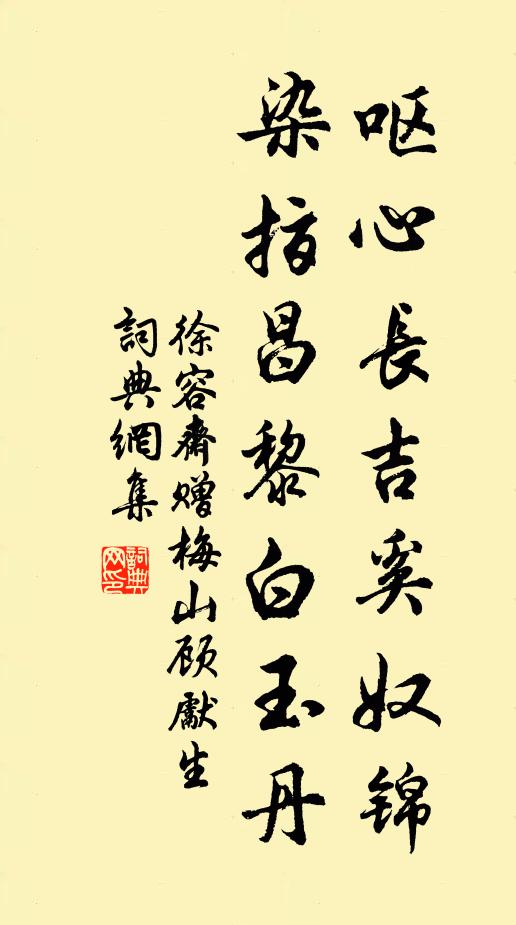 呕心長吉奚奴锦
染指昌黎白玉丹
徐容齋赠梅山顾獻生
詞典網集
詞典网印